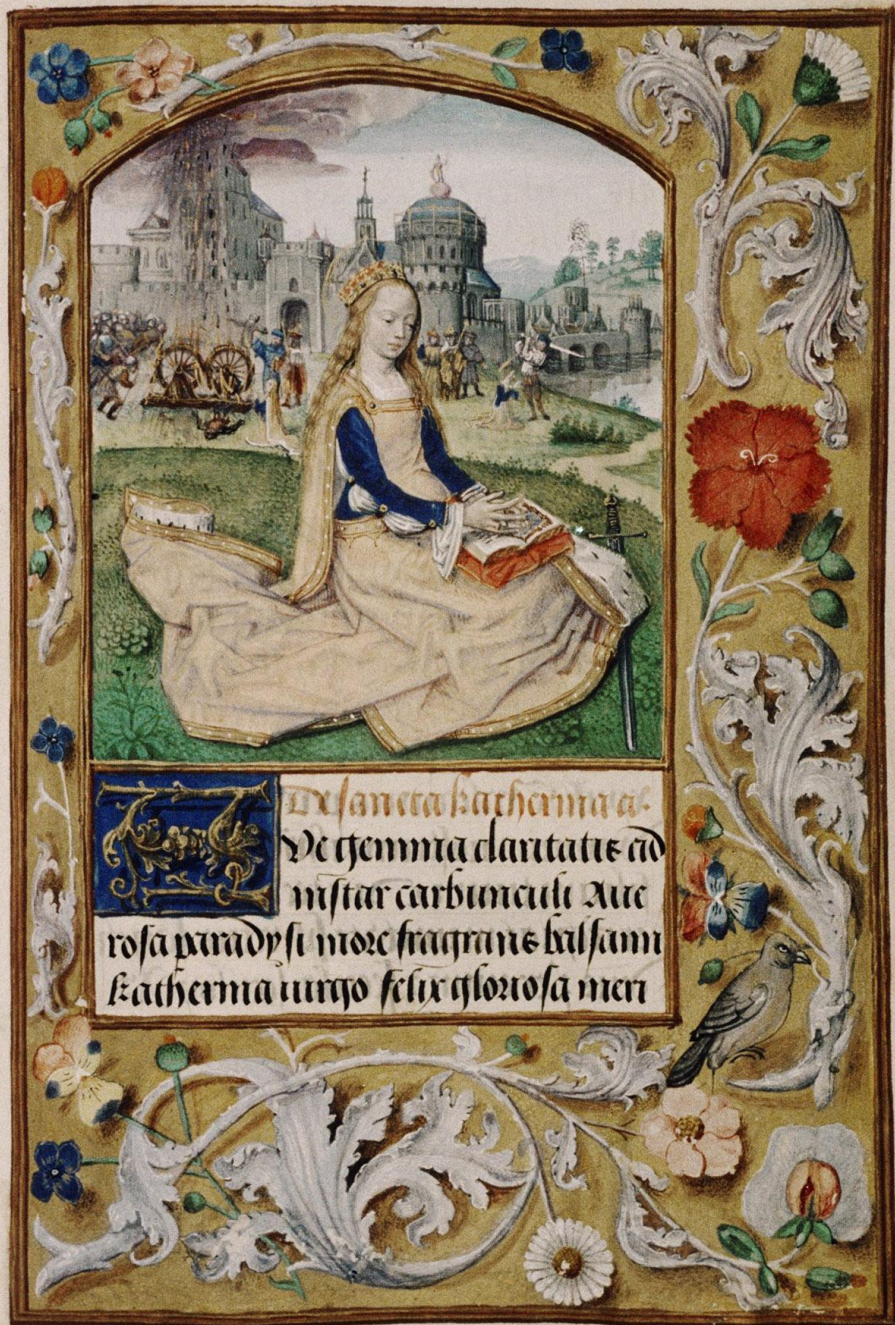 De sancta katherina a.
Ve gemma claritatis ad
instar carbunculi Aue
rosa paradysi more fragrans balsami
katherina uirgo felix gloriosa meri